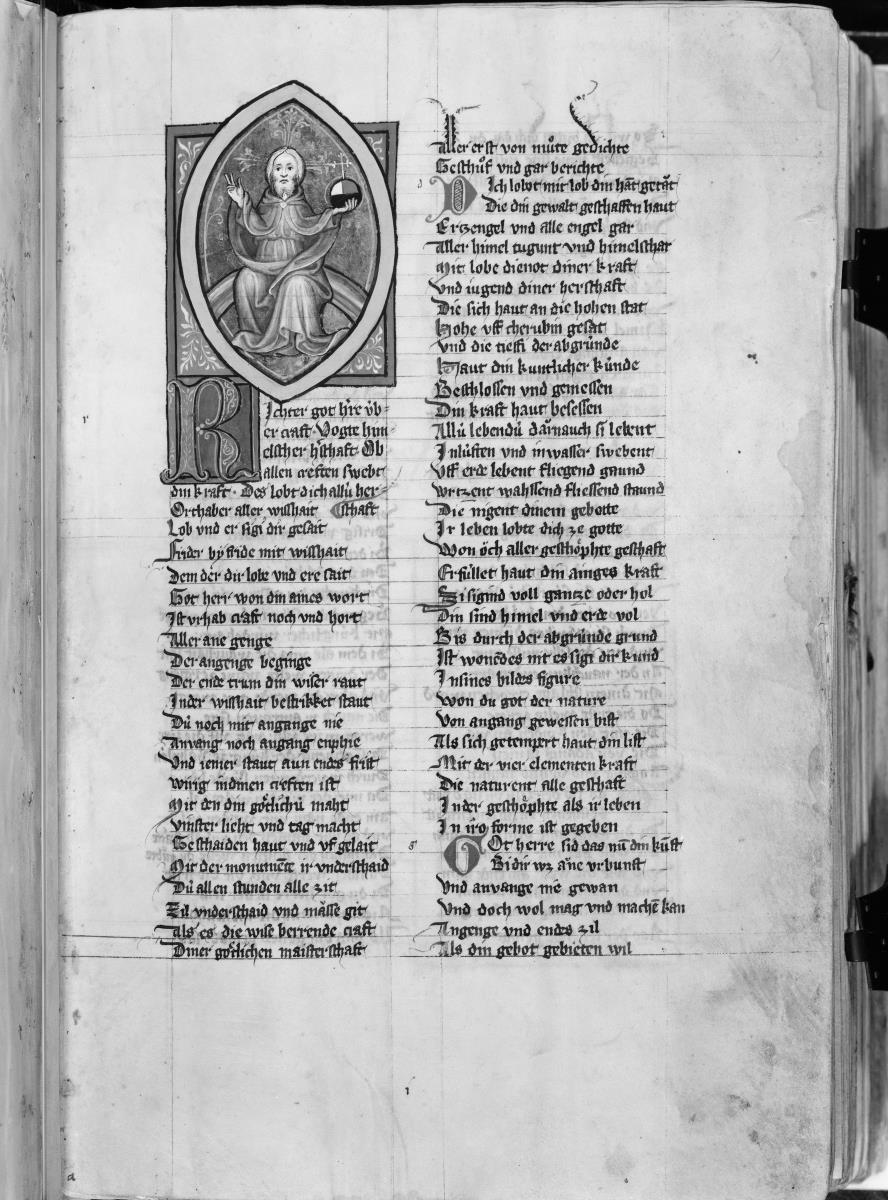 Richter got hr̄e v̊b-
er craft · Vogte him
elscher hr̄schaft · Ob
allen creften swebt
din kraft · Des lobt dich allú her-
Orthaber aller wisshait schaft
Lob vnd er sigi dir gesait
Frider by fride mit wisshait
Dem der dir lobe vnd ere sait
Got herr won din aines wort
Ist vrhab craft noch vnd hort
Aller ane genge
Der angenge beginge
Der ende trum din wiser raut
In der wisshait bestrikket staut
Dú noch mit angange nie
Anvang noch augang enphie
Vnd iemer staut aun endes frist
wirig in dinen creften ist
Mit den din go̊tlichú maht
vinster lieht vnd tag macht
Geschaiden haut vnd vf gelait
Mit der monumēte ir vnderschaid
Dú allen stunden alle zit
Zil vnderschaid vnd ma̓sse git
Als es die wise berrende craft
Diner go̊tlichen maisterschaft
Aller erst von mu̍te gedichte
Geschu̍f vnd gar berichte
Dich lobt mit lob din hāt geta̓t
Die din gewalt geschaffen haut
Ertzengel vnd alle engel gar
Aller himel tugunt vnd himelschar
Mit lobe dienot diner kraft
vnd iugend diner herschaft
Die sich haut an die hohen stat
Hohe vff cherubin gesat
vnd die tieffi der abgrúnde
Haut din kuntlicher kúnde
Beschlossen vnd gemessen
Din kraft haut besessen
Allú lebendú darnauch si lebent
In lúften vnd in wasser swebent
Vff erde lebent fliegend gaund
wrtzent wahssend fliessend staund
Die nigent dinem gebotte
Ir leben lobte dich ze gotte
Won o̊ch aller gescho̊phte geschaft
Erfúllet haut din ainges kraft
Si sigind voll gantze oder hol
Din sind himel vnd erde vol
Bis durch der abgrúnde grund
Ist wonēdes nit es sigi dir kund
In sines bildes figure
won du got der nature
Von angang gewessen bist
Als sich getempert haut din list
Mit der vier elementen kraft
Die naturent alle geschaft
In der gescho̊phte als ir leben
In iro forme ist gegeben
Got herre sid das nū din kūst
Bi dir wz a̓ne vrbunst
Vnd anvange nie gewan
Vnd doch wol mag vnd machē kan
Angenge vnd endes zil
Als din gebot gebieten wil
1